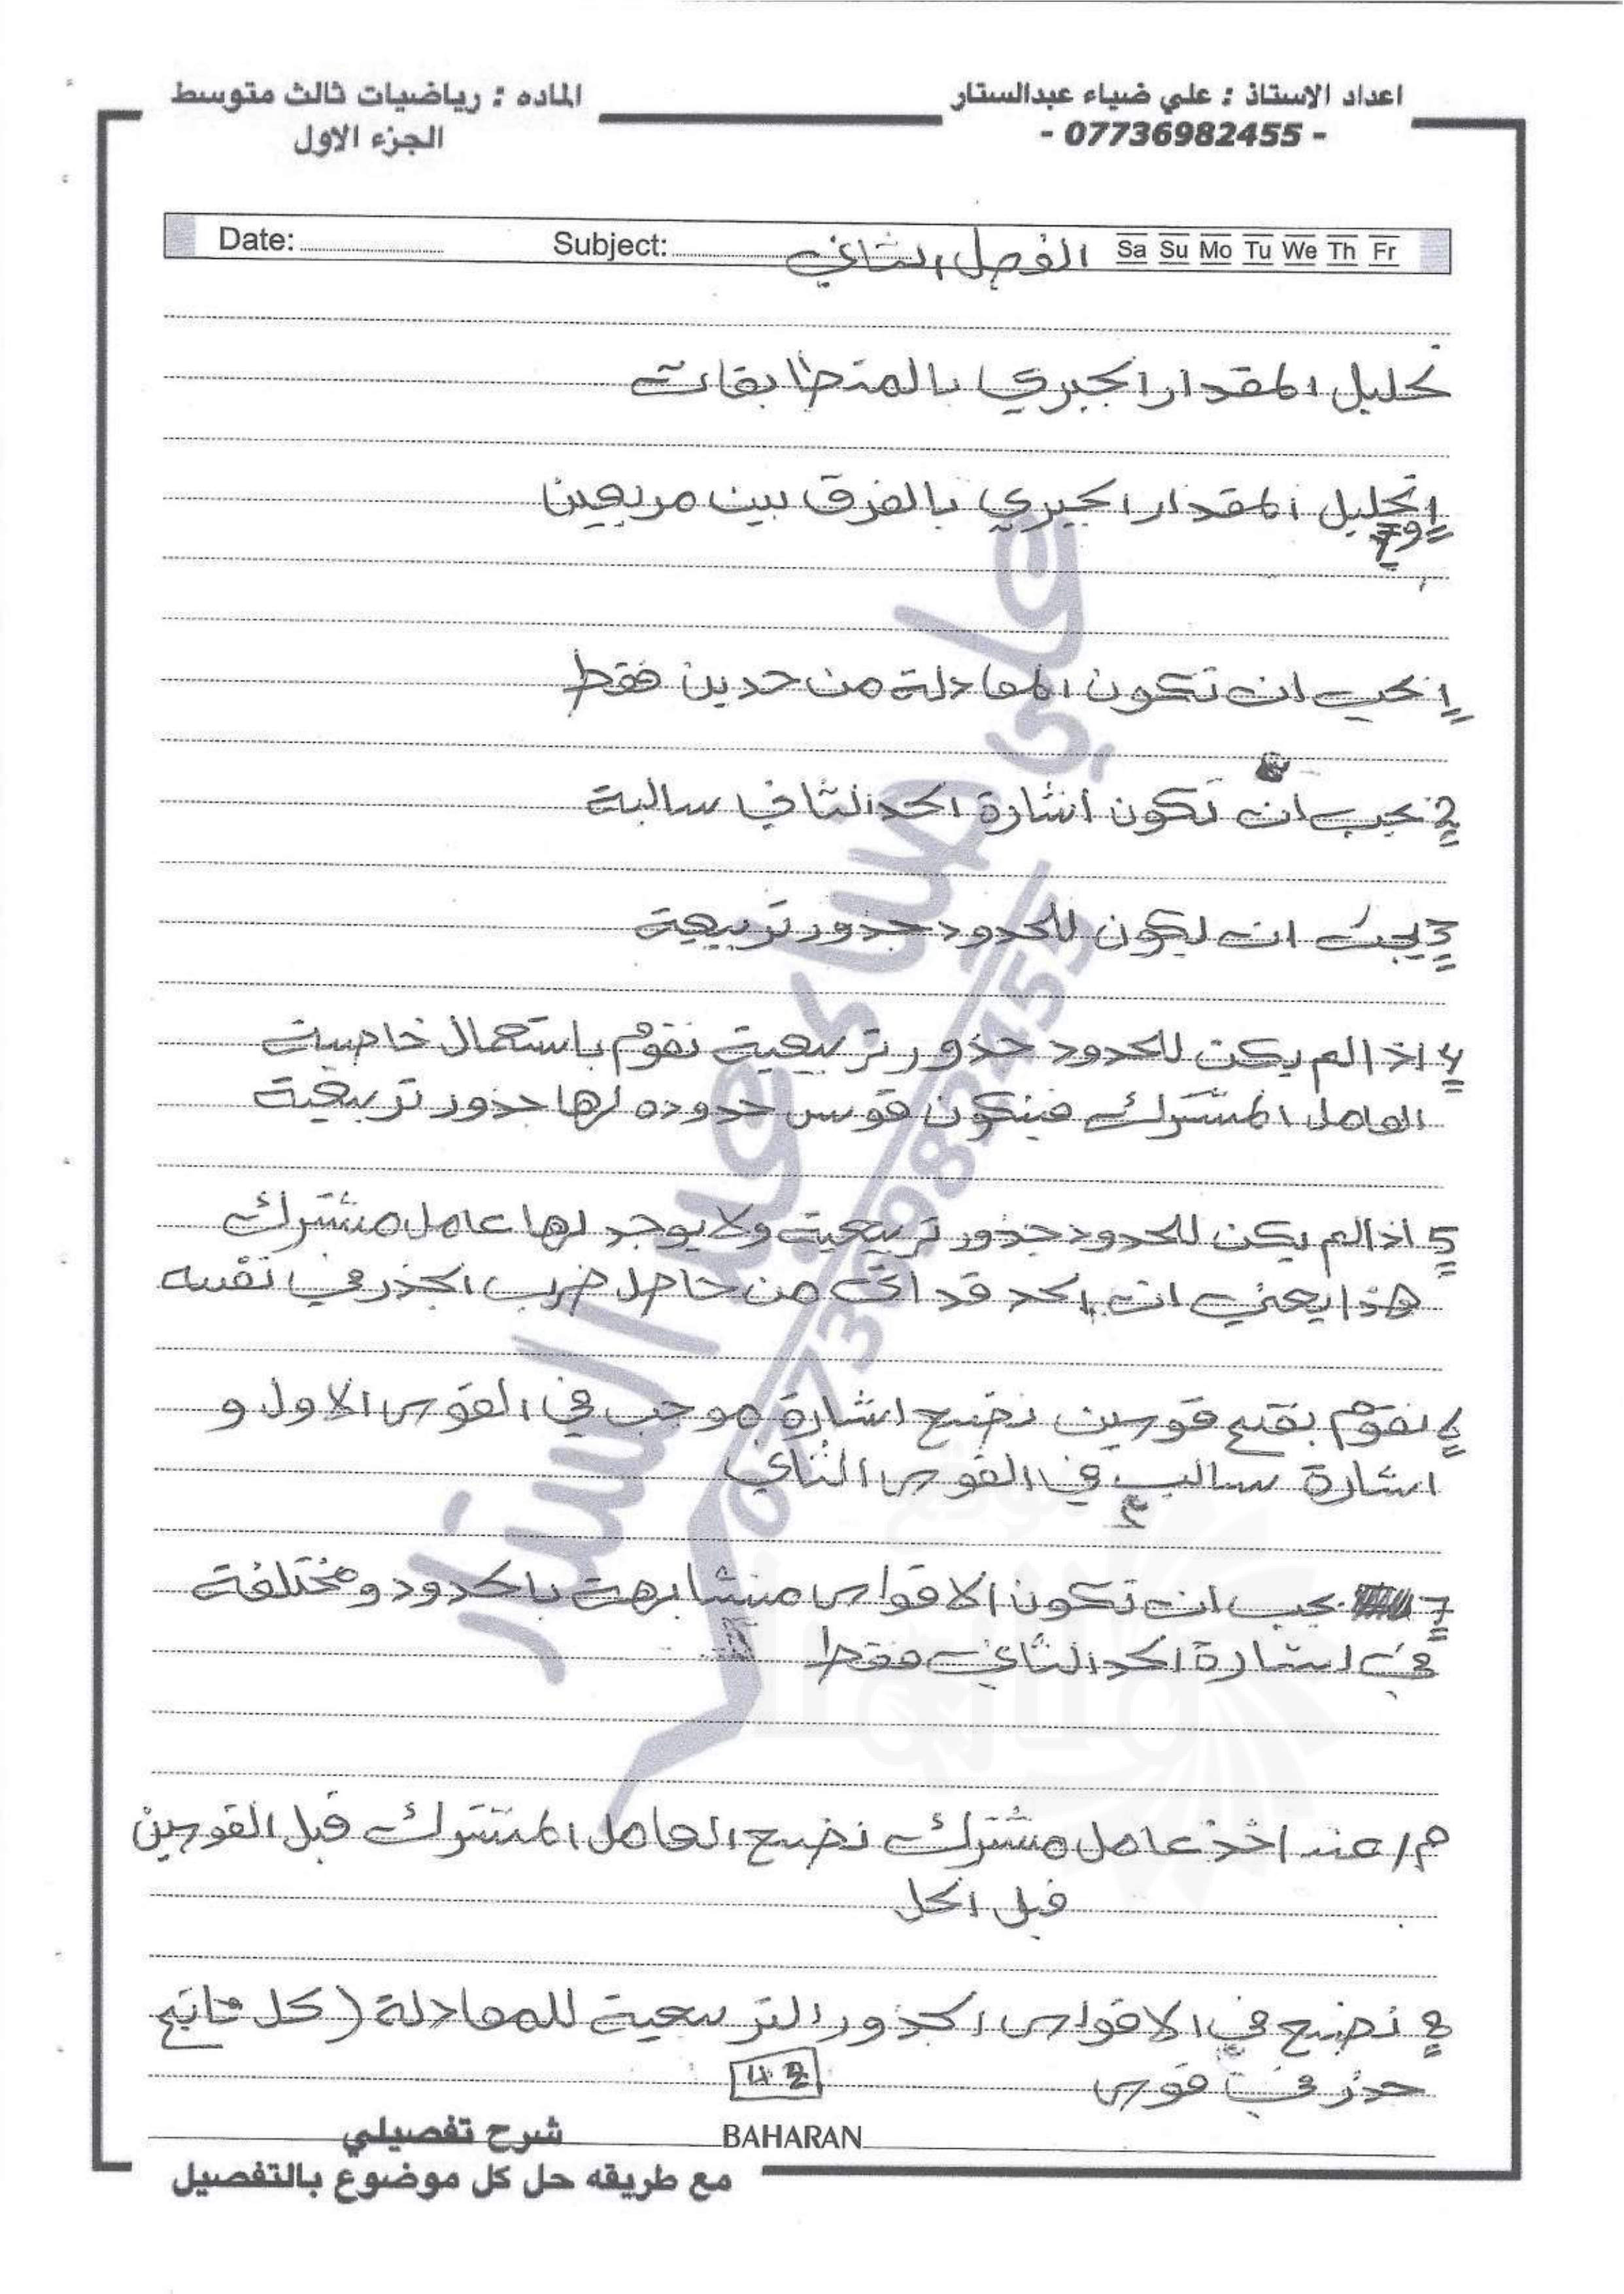 اعداد الاستاذ : علي ضياء عبدالستار
- 07736982455 -
الماده : رياضيات ثالث متوسط
الجزء الاول
Date: Subject: الفصل الثاني Sa Su Mo Tu We Th Fr
تحليل المقدار الجبري بالمتطابقات
1 تحليل المقدار الجبري بالفرق بين مربعين
1 يجب ان تكون المعادلة من حدين فقط
2 يجب ان تكون أشارة الحد الثاني سالبة
3 يجب ان يكون للحدود جذور تربيعية
4 اذا لم يكن للحدود جذور تربيعية نقوم باستعمال خاصية
العامل المشترك فيتكون قوس حدوده لها جذور تربيعية
5 اذا لم يكن للحدود جذور تربيعية ولا يوجد لها عامل مشترك
هذا يعني ان الحد قد اتى من حاصل ضرب الجذر في نفسه
6 نقوم بفتح قوسين نضع اشارة موجب في القوس الاول و
اشارة سالب في القوس الثاني
7 يجب ان تكون الاقواس متشابهة بالحدود ومختلفة
في اشارة الحد الثاني فقط
م/ عند اخذ عامل مشترك نضع العامل المشترك قبل القوسين
قبل الحل
8 نضع في الاقواس الجذور التربيعية للمعادلة (كل ناتج
جذر في قوس
42
BAHARAN
شرح تفصيلي
مع طريقه حل كل موضوع بالتفصيل
علي ضياء عبد الستار
07736982455